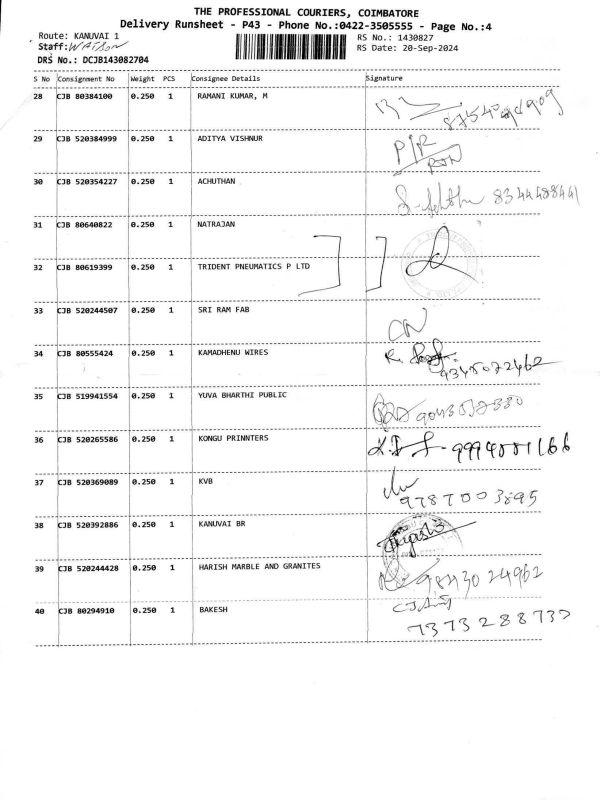 THE PROFESSIONAL COURIERS, COIMBATORE
Delivery Runsheet - P43 - Phone No.:0422-3505555 - Page No.:4
Route: KANUVAI 1 RS No.: 1430827
Staff: WATSON RS Date: 20-Sep-2024
DRS No.: DCJB143082704
S No Consignment No Weight PCS Consignee Details Signature
28 CJB 80384100 0.250 1 RAMANI KUMAR, M
29 CJB 520384999 0.250 1 ADITYA VISHNUR
30 CJB 520354227 0.250 1 ACHUTHAN 8344488441
31 CJB 80640822 0.250 1 NATRAJAN
32 CJB 80619399 0.250 1 TRIDENT PNEUMATICS P LTD
33 CJB 520244507 0.250 1 SRI RAM FAB
34 CJB 80555424 0.250 1 KAMADHENU WIRES 9345072462
35 CJB 519941554 0.250 1 YUVA BHARTHI PUBLIC
36 CJB 520265586 0.250 1 KONGU PRINNTERS
37 CJB 520369089 0.250 1 KVB 9787003895
38 CJB 520392886 0.250 1 KANUVAI BR
39 CJB 520244428 0.250 1 HARISH MARBLE AND GRANITES
40 CJB 80294910 0.250 1 BAKESH